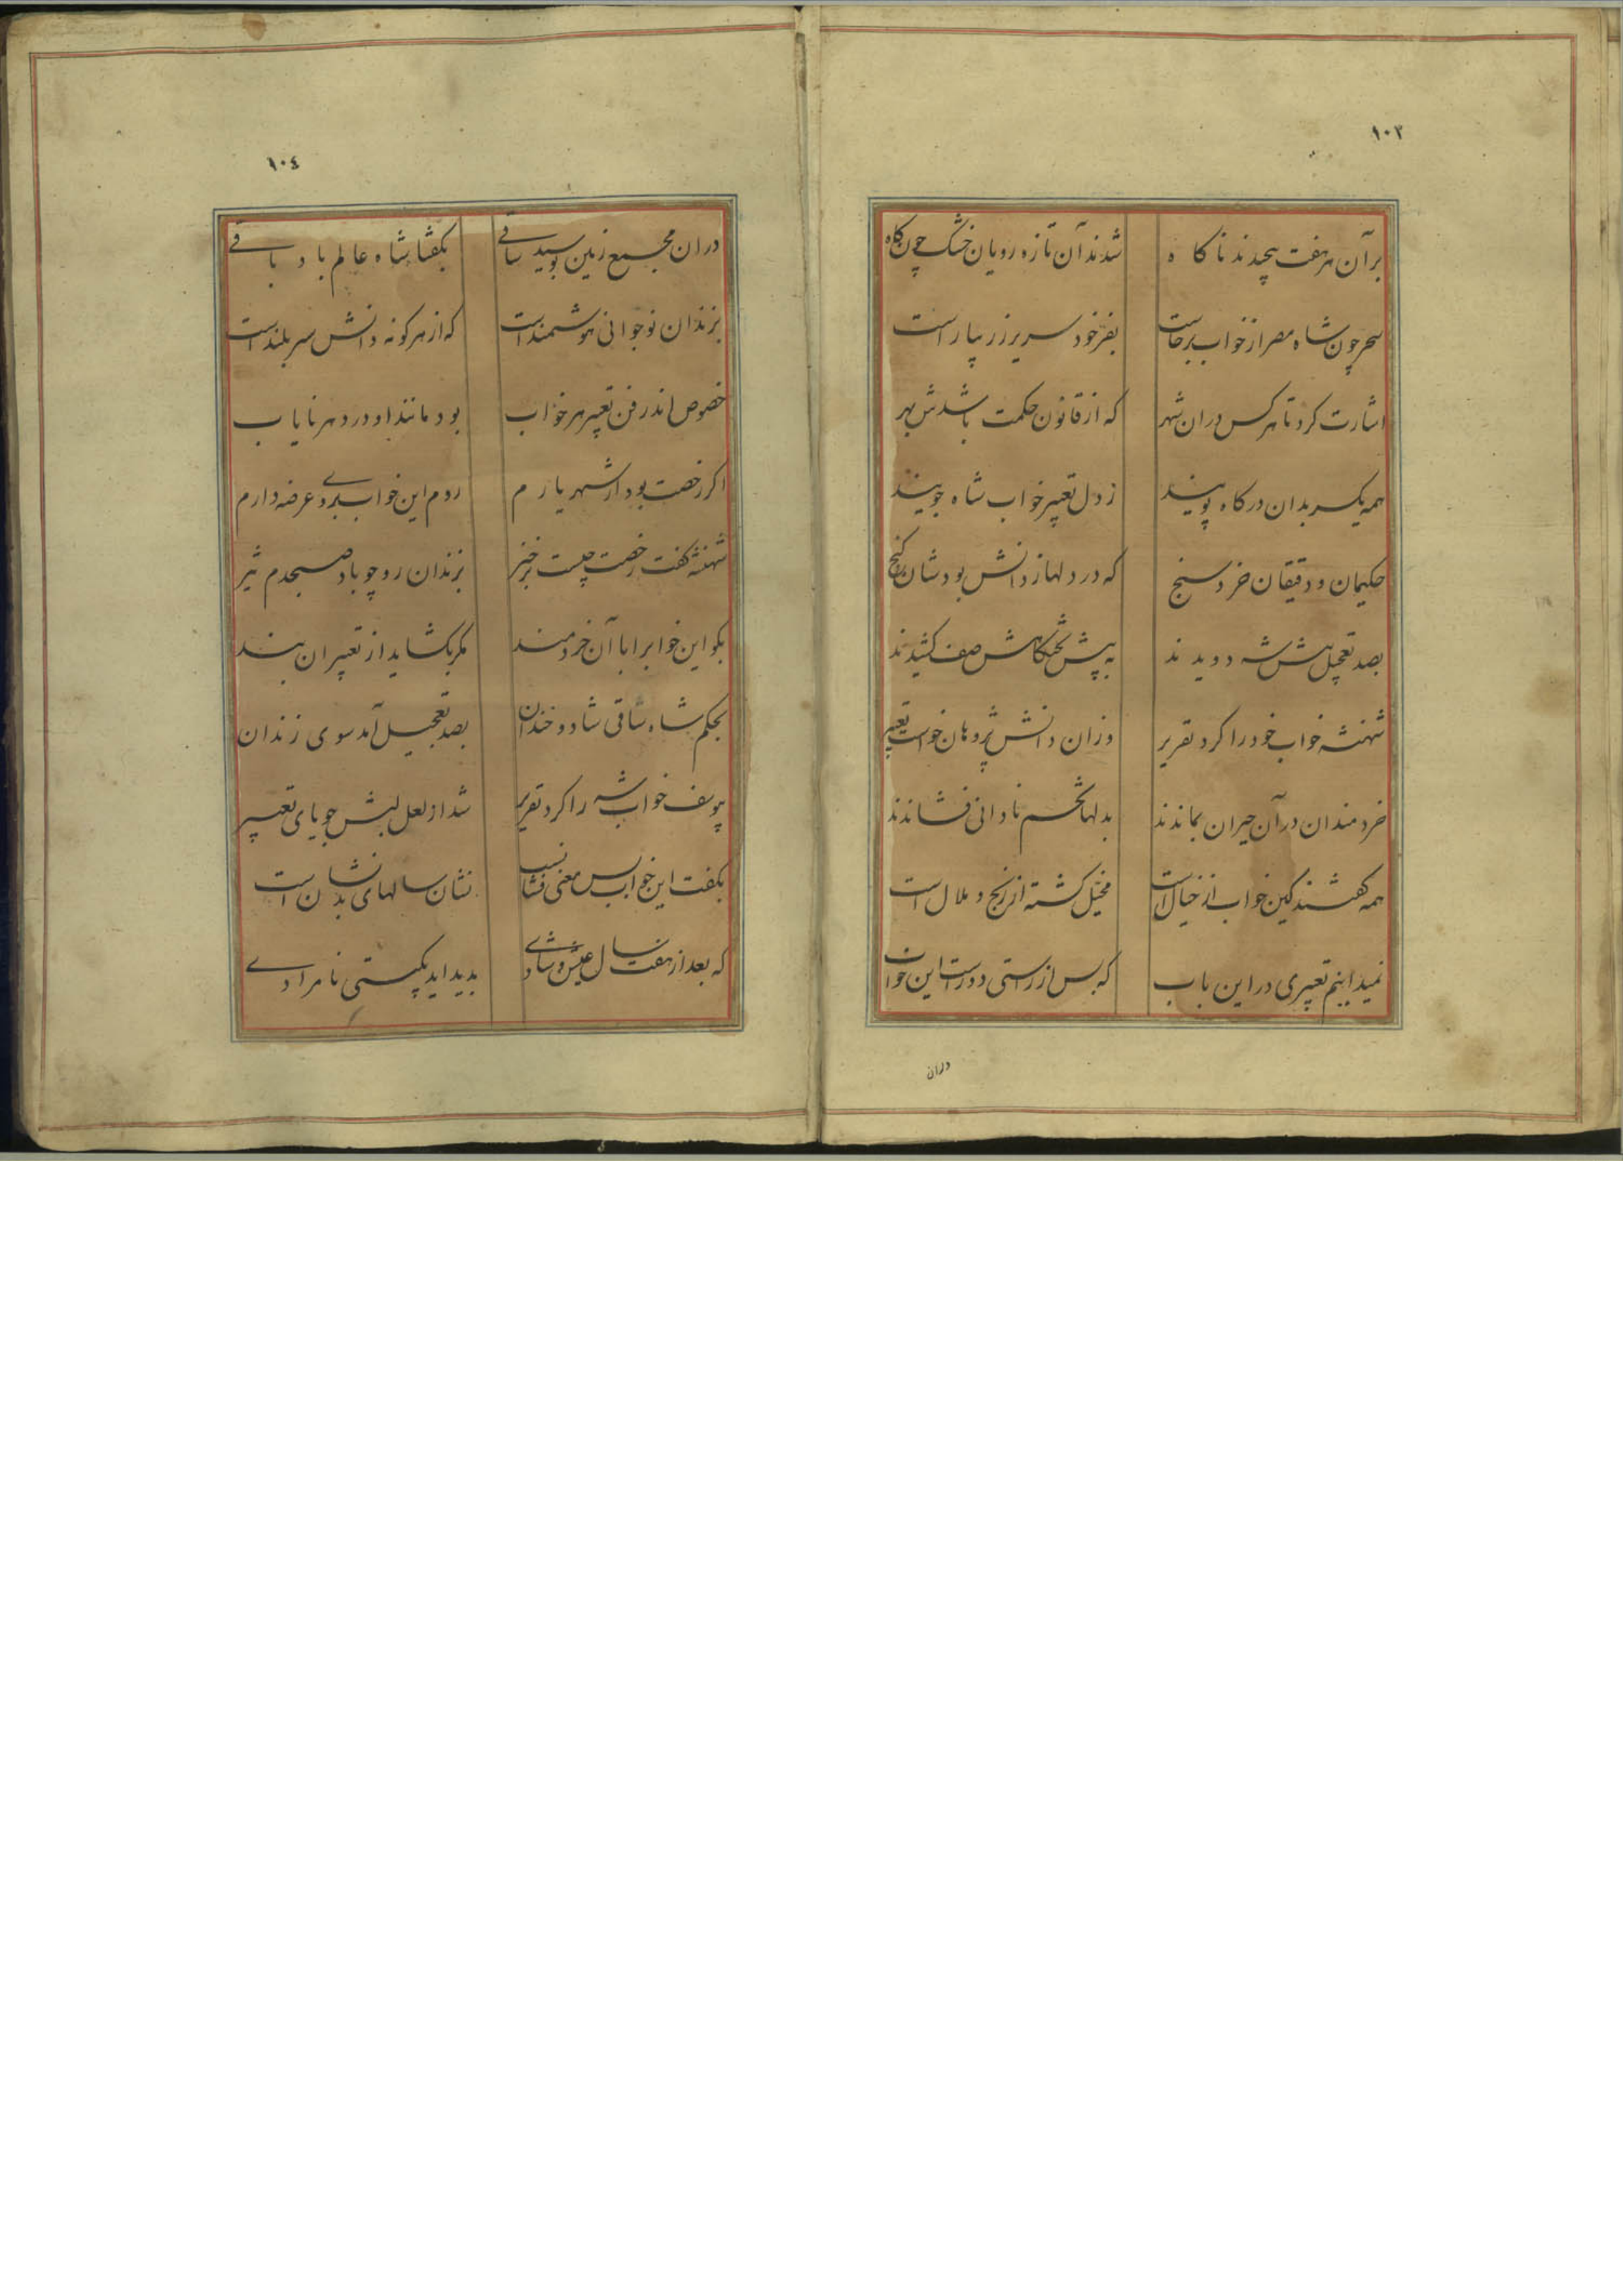 ١٠٣
برآن هر هفت پیچیدند ناکاه شدند آن تازه رویان خشک چون کاه
سحر چون شاه مصر از خواب برخاست بفر خود سریر زر بیاراست
اشارت کرد تا هر کس دران شهر که از قانون حکمت باشدش بهر
همه یکسر بدان درکاه پویند ز دل تعبیر خواب شاه جویند
حکیمان و دقیقان خرد سنج که در دلها ز دانش بودشان کنج
بصد تعجیل پیش شه دویدند به پیش تختکاهش صف کشیدند
شهنشه خواب خود را کرد تقریر وزان دانش پژوهان خواست تعبیر
خردمندان در آن حیران بماندند بدلها تخم نادانی فشاندند
همه کفتند کین خواب از خیال است مخیل کشته از رنج و ملال است
نمیدانیم تعبیری در این باب که بس از راستی دور است این خواب
دران
١٠٤
دران مجمع زمین بوسید ساقی بکفتا شاه عالم باد باقی
بزندان نوجوانی هوشمند است که از هر کونه دانش سربلند است
خصوص اندر فن تعبیر هر خواب بود مانند او در دهر نایاب
اکر رخصت بود از شهریارم روم این خواب بروی عرضه دارم
شهنشه کفت رخصت چیست برخیز بزندان رو چو باد صبحدم تیز
بکو این خوابرا با آن خردمند مکر بکشاید از تعبیر ان بند
بحکم شاه ساقی شاد و خندان بصد تعجیل آمد سوی زندان
بیوسف خواب شه را کرد تقریر شد از لعل لبش جویای تعبیر
بکفت این خواب بس معنی نشانست نشان سالهای بد نشان است
که بعد از هفت سال عیش و شادی بدید اید بکیتی نامرادی